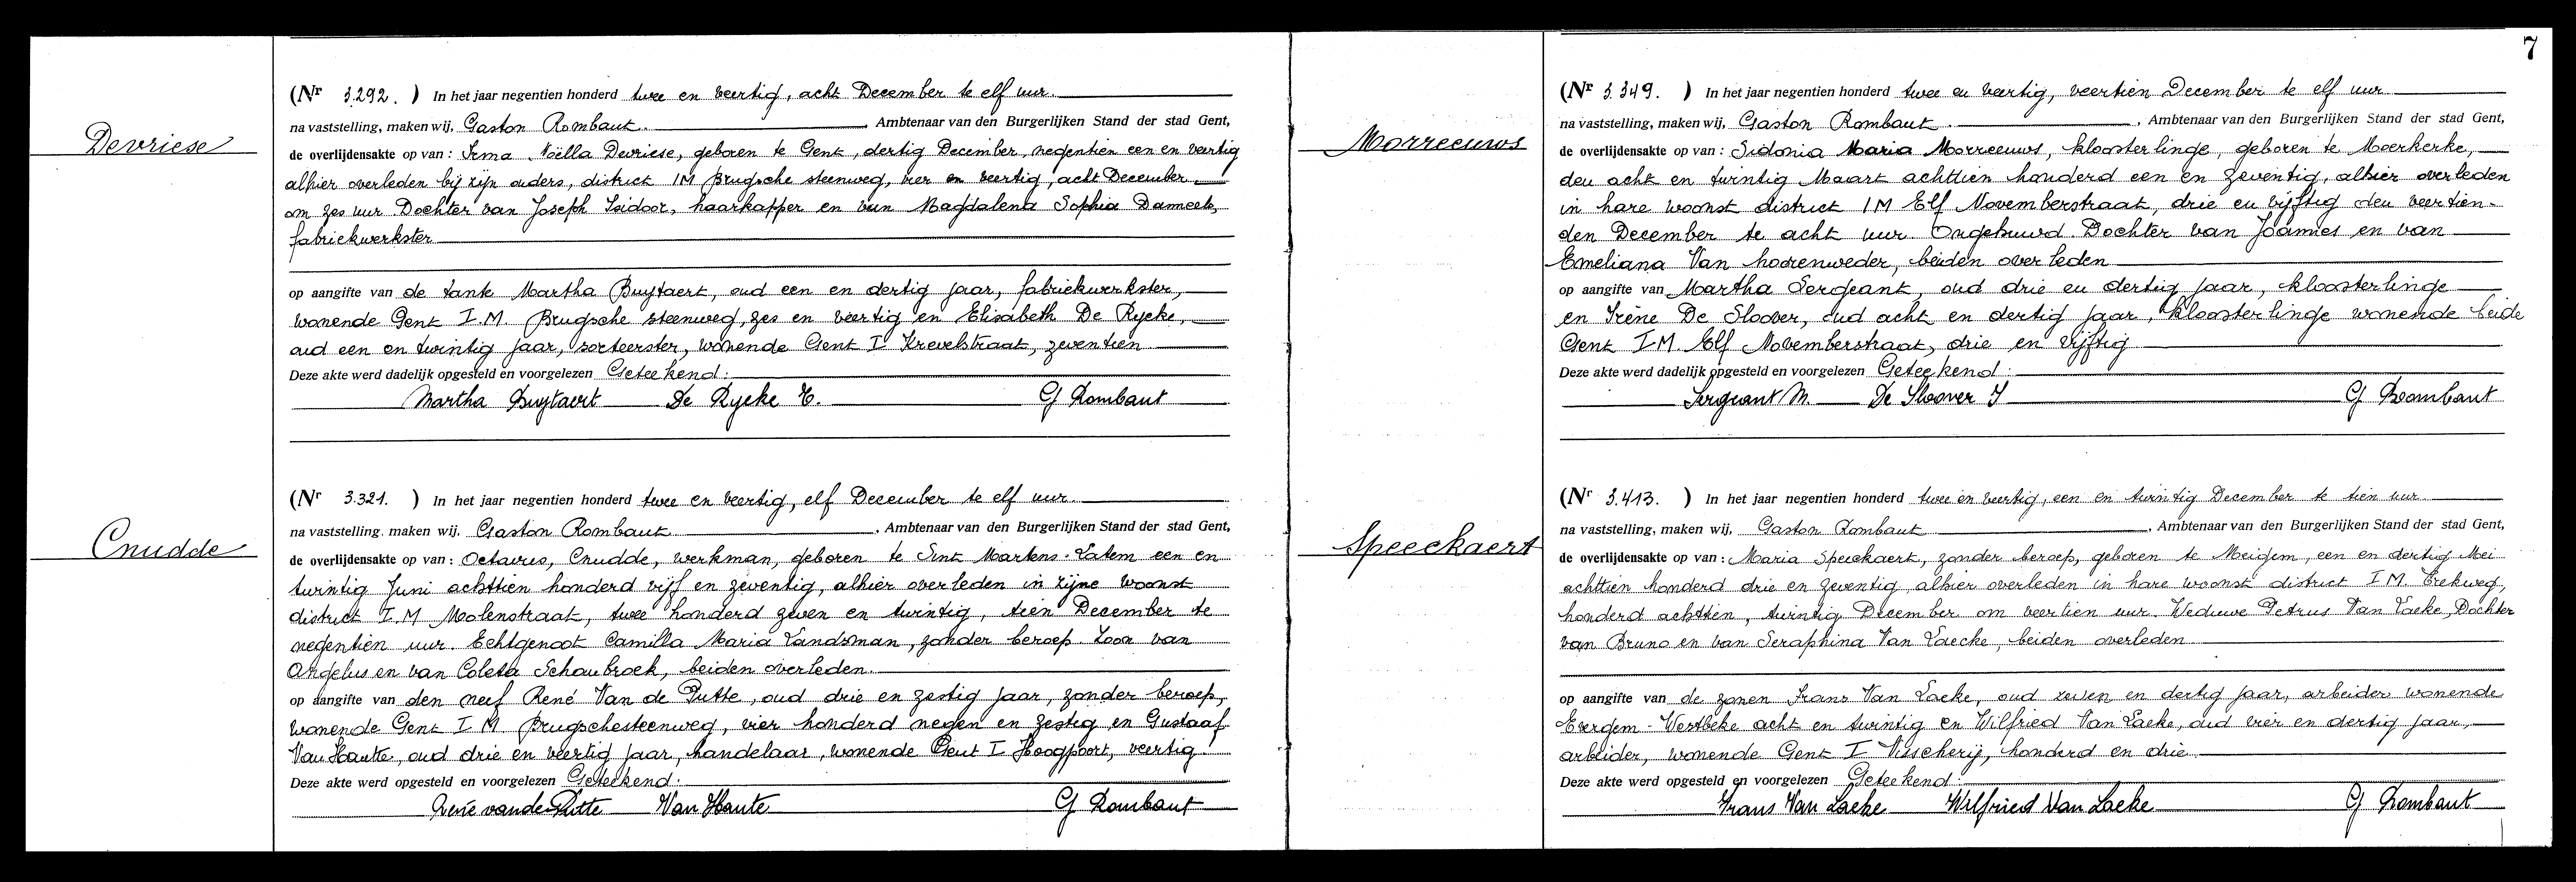 Devriese
(Nr 3.292. ) In het jaar negentien honderd twee en veertig, acht December te elf uur.
na vaststelling, maken wij, Gaston Rombaut. Ambtenaar van den Burgerlijken Stand der stad Gent,
de overlijdensakte op van : Irma Noëlla Devriese, geboren te Gent, dertig December, negentien een en veertig
alhier overleden bij zijn ouders, district IM Brugsche steenweg, vier en veertig, acht December
om zes uur Dochter van Joseph Isidoor, haarkapper en van Magdalena Sophia
fabriekwerkster
op aangifte van de tante Martha Buytaert, oud een en dertig jaar, fabriekwerkster,
wonende Gent I.M. Brugsche steenweg, zes en veertig en Elisabeth De Rycke,
oud een en twintig jaar, sorteerster, wonende Gent I Krevelstraat, zeventien
Deze akte werd dadelijk opgesteld en voorgelezen Geteekend :
Martha Buytaert De Rycke E. G Rombaut
Cnudde
(Nr 3.321. ) In het jaar negentien honderd twee en veertig, elf December te elf uur.
na vaststelling. maken wij. Gaston Rombaut . Ambtenaar van den Burgerlijken Stand der stad Gent,
de overlijdensakte op van : Octavus, Cnudde, werkman, geboren te Sint Martens-Latem een en
twintig Juni achttien honderd vijf en zeventig, alhier overleden in zijne woonst
district I.M Molenstraat, twee honderd zeven en twintig, tien December te
negentien uur. Echtgenoot Camilla Maria Landsman, zonder beroep. Zoon van
Angelus en van Coleta Schaubroek, beiden overleden.
op aangifte van den neef René Van de Putte, oud drie en zestig jaar, zonder beroep,
wonende Gent I M Brugschesteenweg, vier honderd negen en zestig en Gustaaf
Van Haute, oud drie en veertig jaar, handelaar, wonende Gent I Hoogpoort, veertig
Deze akte werd opgesteld en voorgelezen Geteekend :
Rene vande Putte Van Haute G Rombaut
7
Morreeuws
(Nr 3.349. ) In het jaar negentien honderd twee en veertig, veertien December te elf uur
na vaststelling, maken wij, Gaston Rombaut . Ambtenaar van den Burgerlijken Stand der stad Gent,
de overlijdensakte op van : Sidonia Maria Morreeuws, kloosterlinge, geboren te Moerkerke,
den acht en twintig Maart achttien honderd een en zeventig, alhier overleden
in hare woonst district IM Elf Novemberstraat, drie en vijftig den veertien-
den December te acht uur. Ongehuwd. Dochter van Joannes en van
Emeliana Van hoorenweder, beiden overleden
op aangifte van Martha Sergeant, oud drie en dertig jaar, kloosterlinge
en Irène De Sloover, oud acht en dertig jaar, kloosterlinge wonende beide
Gent I M. Elf Novemberstraat, drie en vijftig
Deze akte werd dadelijk opgesteld en voorgelezen Geteekend :
Sergeant M. De Sloover I G Rombaut
Speeckaert
(Nr 3.413. ) In het jaar negentien honderd twee en veertig, een en twintig December te tien uur.
na vaststelling, maken wij, Gaston Rombaut . Ambtenaar van den Burgerlijken Stand der stad Gent,
de overlijdensakte op van : Maria Speeckaert, zonder beroep, geboren te Meigem, een en dertig Mei
achttien honderd drie en zeventig, alhier overleden in hare woonst district I M. Trekweg,
honderd achttien, twintig December om veertien uur. Weduwe Petrus Van Laeke, Dochter
van Bruno en van Seraphina Van Laecke, beiden overleden
op aangifte van de zonen Frans Van Laeke, oud zeven en dertig jaar, arbeider wonende
Evergem - Westbeke acht en twintig en Wilfried Van Laeke, oud vier en dertig jaar,
arbeider, wonende Gent I Visscherij, honderd en drie.
Deze akte werd opgesteld en voorgelezen Geteekend :
Frans Van Laeke Wilfried Van Laeke G Rombaut